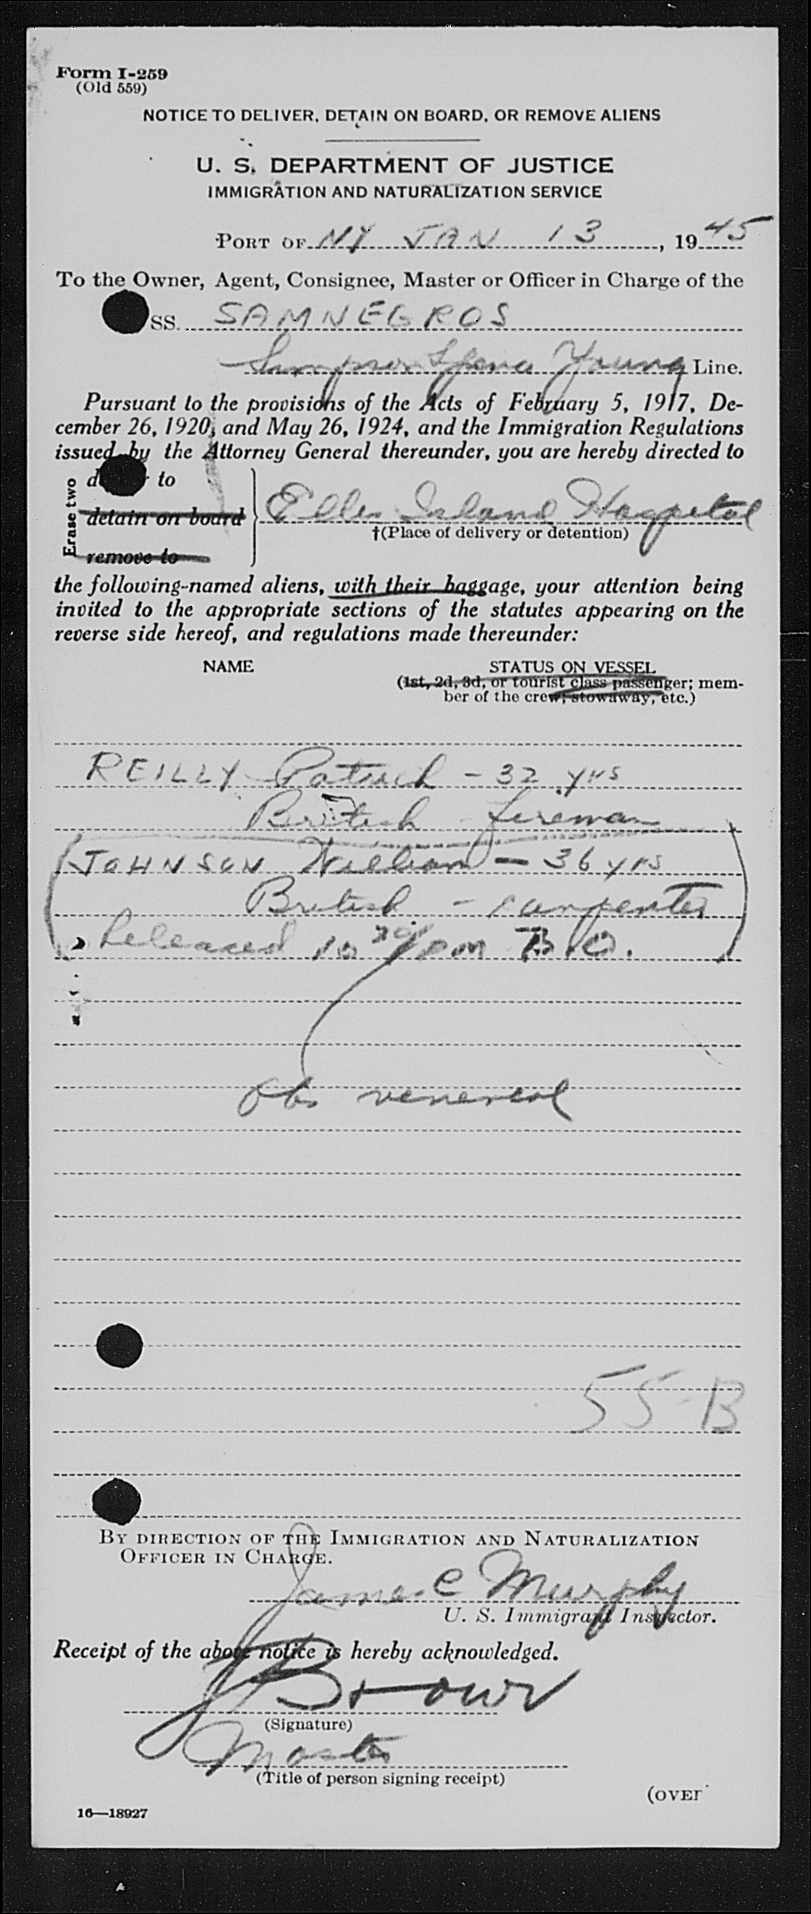 Form I-259
(Old 559)
NOTICE TO DELIVER, DETAIN ON BOARD, OR REMOVE ALIENS
U. S. DEPARTMENT OF JUSTICE
IMMIGRATION AND NATURALIZATION SERVICE
PORT OF NY JAN 13, 1945
To the Owner, Agent, Consignee, Master or Officer in Charge of the
SS. SAMNEGROS
Simpson Young Line.
Pursuant to the provisions of the Acts of February 5, 1917, De-
cember 26, 1920, and May 26, 1924, and the Immigration Regulations
issued by the Attorney General thereunder, you are hereby directed to
Erase two
to
detain on board
remove to
Ellis Island Hospital
†(Place of delivery or detention)
the following-named aliens, with their baggage, your attention being
invited to the appropriate sections of the statutes appearing on the
reverse side hereof, and regulations made thereunder:
NAME STATUS ON VESSEL
(1st, 2d, 3d, or tourist class passenger; mem-
ber of the crew; stowaway, etc.)
REILLY Patrick - 32 yrs
British - fireman
(JOHNSON William - 36 yrs
British - carpenter
Released 10 30 pm B.O.)
Obs venereal
55-B
BY DIRECTION OF THE IMMIGRATION AND NATURALIZATION
OFFICER IN CHARGE.
James C Murphy
U. S. Immigrant Inspector.
Receipt of the above notice is hereby acknowledged.
J Brown
(Signature)
Master
(Title of person signing receipt)
(OVER
16—18927